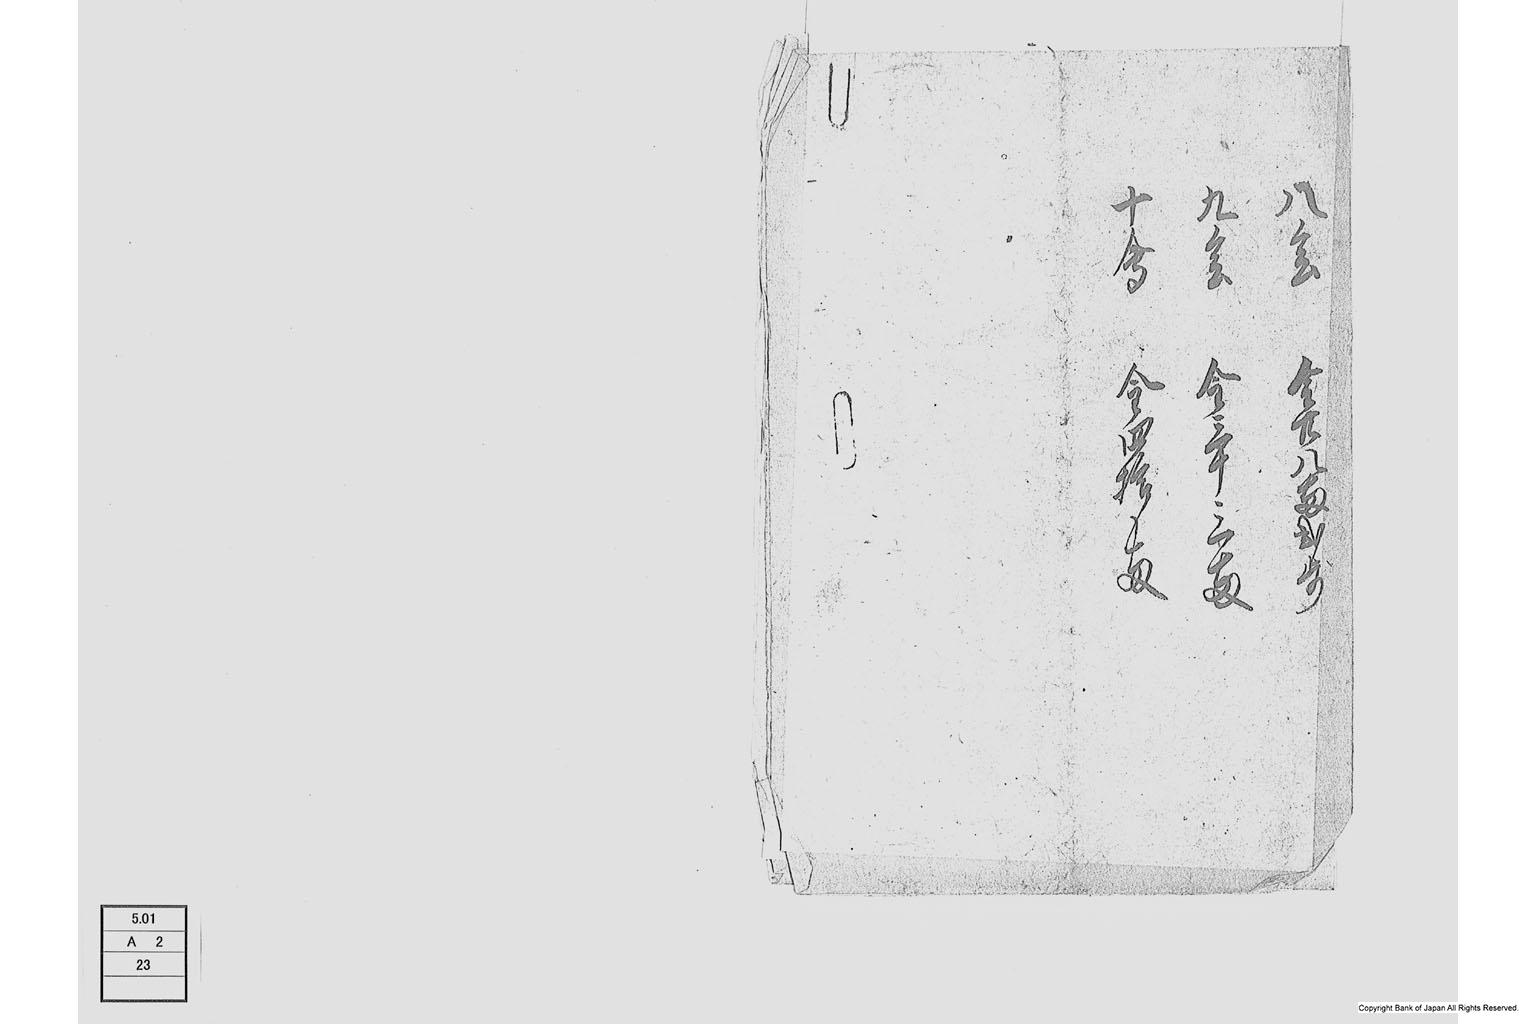 八会 金廿八両弐歩
九会 金三十三両
十会 金四拾両
5.01
A 2
23
Copyright Bank of Japan All Rights Reserved.